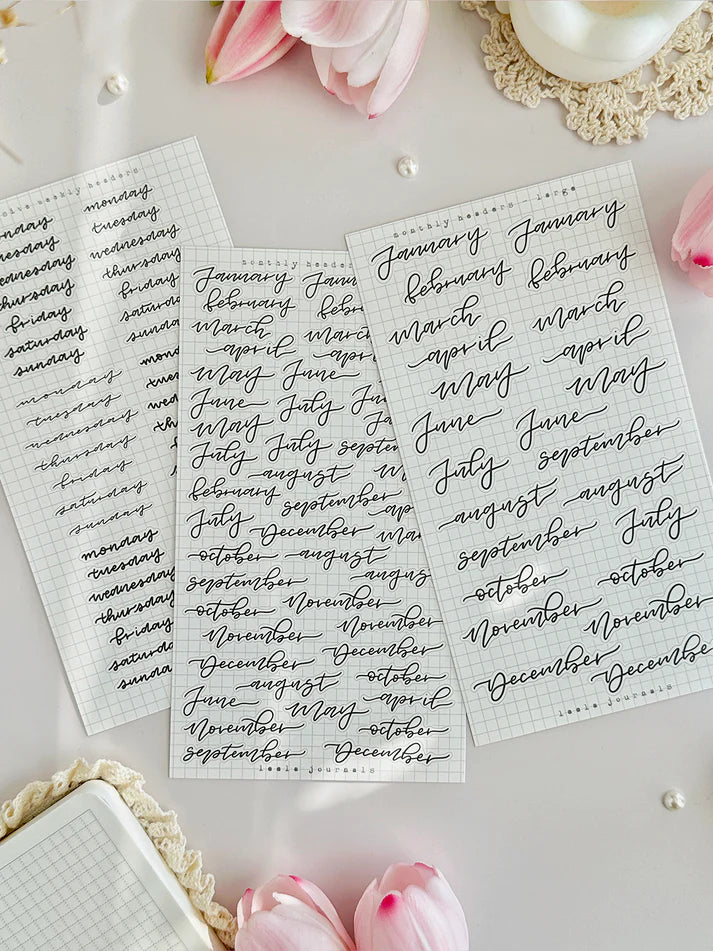 weekly headers
monday
tuesday
wednesday
thursday
friday
saturday
sunday
monday
tuesday
wednesday
thursday
friday
saturday
sunday
monday
tuesday
wednesday
thursday
friday
saturday
monday
tuesday
wednesday
thursday
friday
monthly headers
January
february
march march
april
May June
June July
May
July July
august
february
september
July
December
october august
september
october November
November November
December December
august october
June May april
November october
september December
leele journals
monthly headers - large
January January
february february
march march
april april
May May
June June
July september
august august
september July
october october
November November
December
leele journals